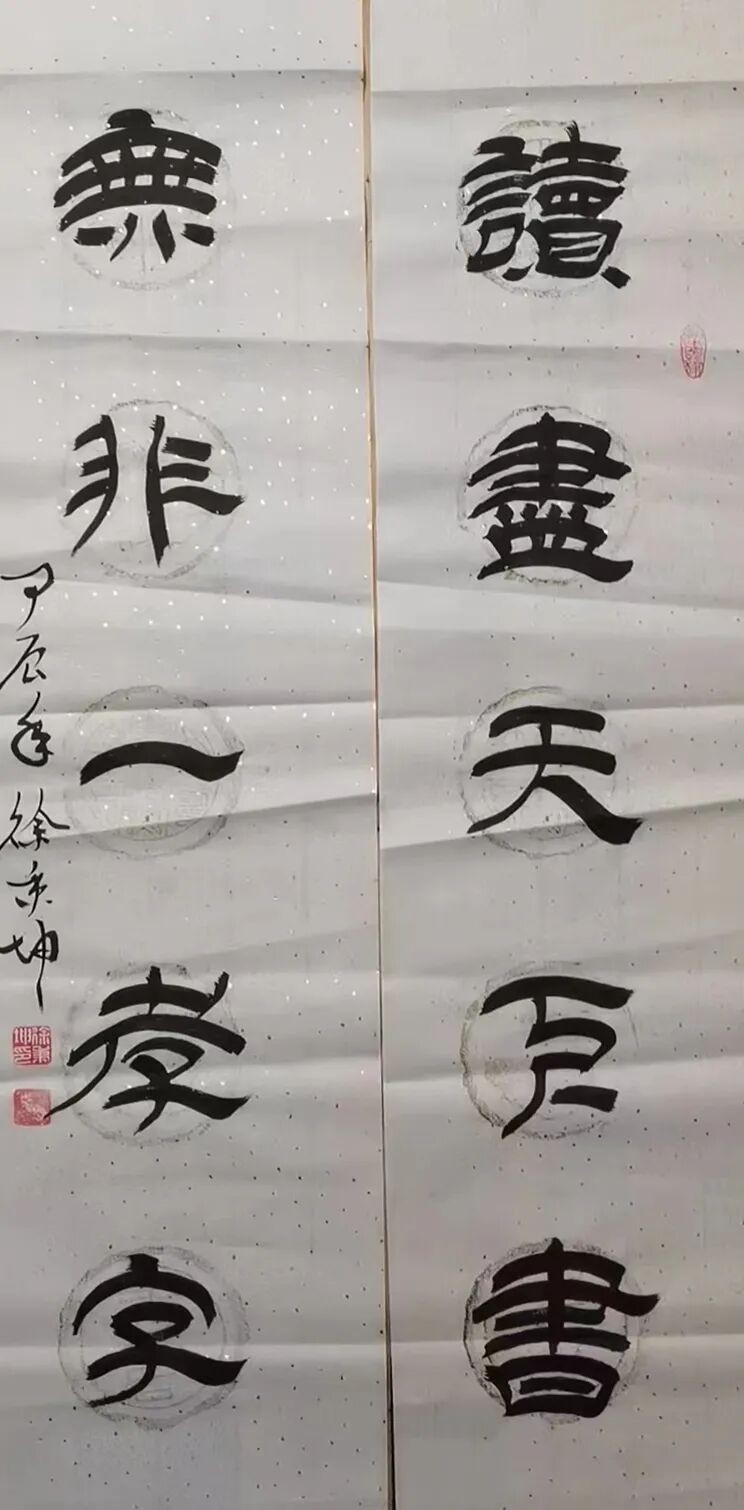 讀盡天書
無非一孝字
甲辰年徐坤